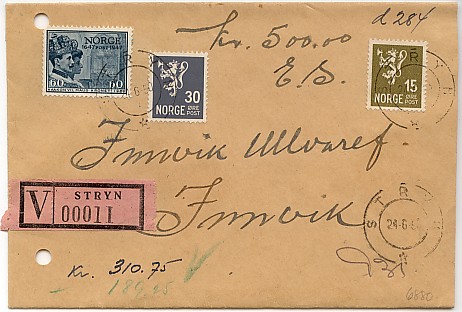 d 284
Kr. 500.00
E. S.
NORGE
1647 POST 1947
60 60
30
NORGE ØRE POST
15
NORGE ØRE POST
STRYN
Innvik Ullvaref.
Innvik
V STRYN
00011
STRYN
24-6
Kr. 310.75
180.25
6880.